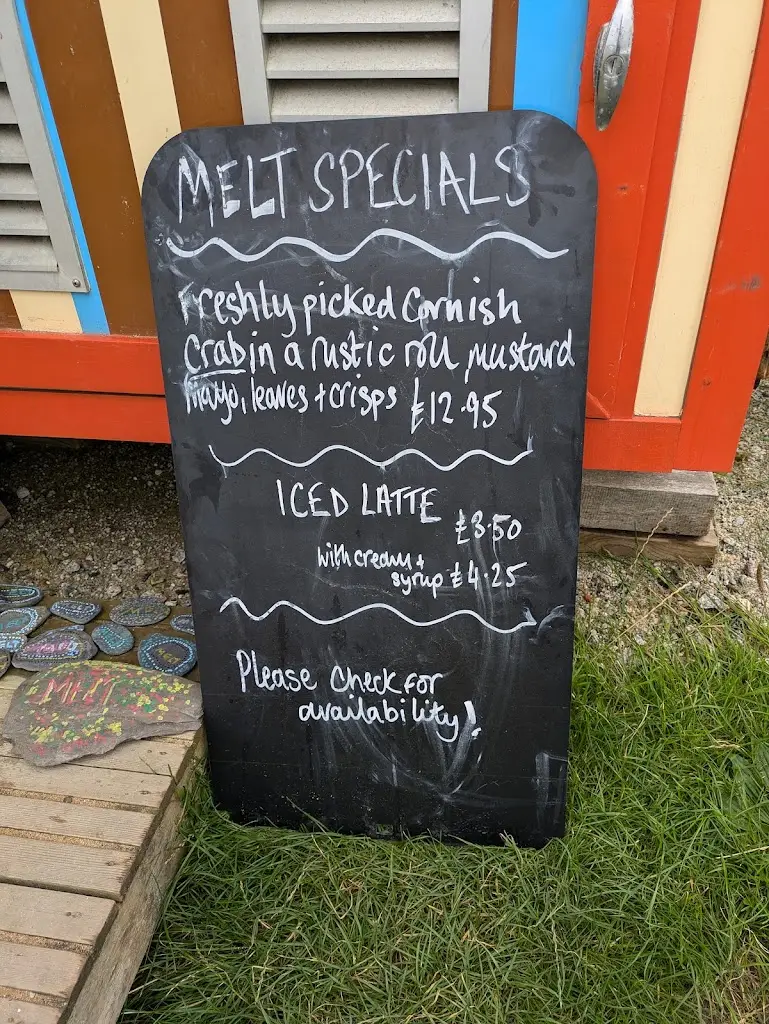 MELT SPECIALS
Freshly picked Cornish
Crab in a rustic roll mustard
mayo, leaves + crisps £12.95
ICED LATTE
£3.50
with cream +
syrup £4.25
Please check for
availability!
MELT